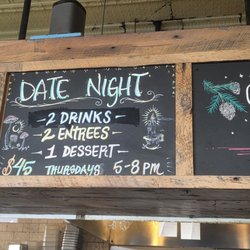 DATE NIGHT
2 DRINKS
2 ENTREES
1 DESSERT
$45 THURSDAYS 5-8 PM